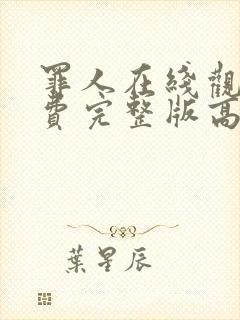 罪人在綫觀
費完整版高
葉星辰